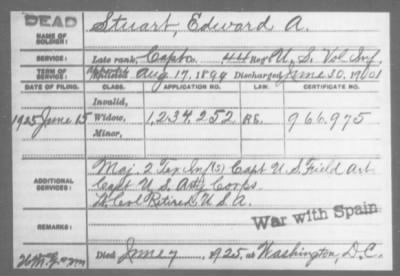 DEAD
NAME OF SOLDIER: Stuart, Edward A.
SERVICE: Late rank, Capt Co. 44 Reg't U.S. Vol Inf.
TERM OF SERVICE: Enlisted Aug 17, 1899 Discharged June 30, 1901
DATE OF FILING. CLASS. APPLICATION NO. LAW. CERTIFICATE NO.
Invalid,
1925 June 15 Widow, 1,234,252 966,975
Minor,
Maj. 2 Tex Inf Capt U.S Field Art
ADDITIONAL SERVICES: Capt U.S. Corps.
Retired U.S.A.
War with Spain
REMARKS:
Died June 7, 1925, at Washington, D.C.